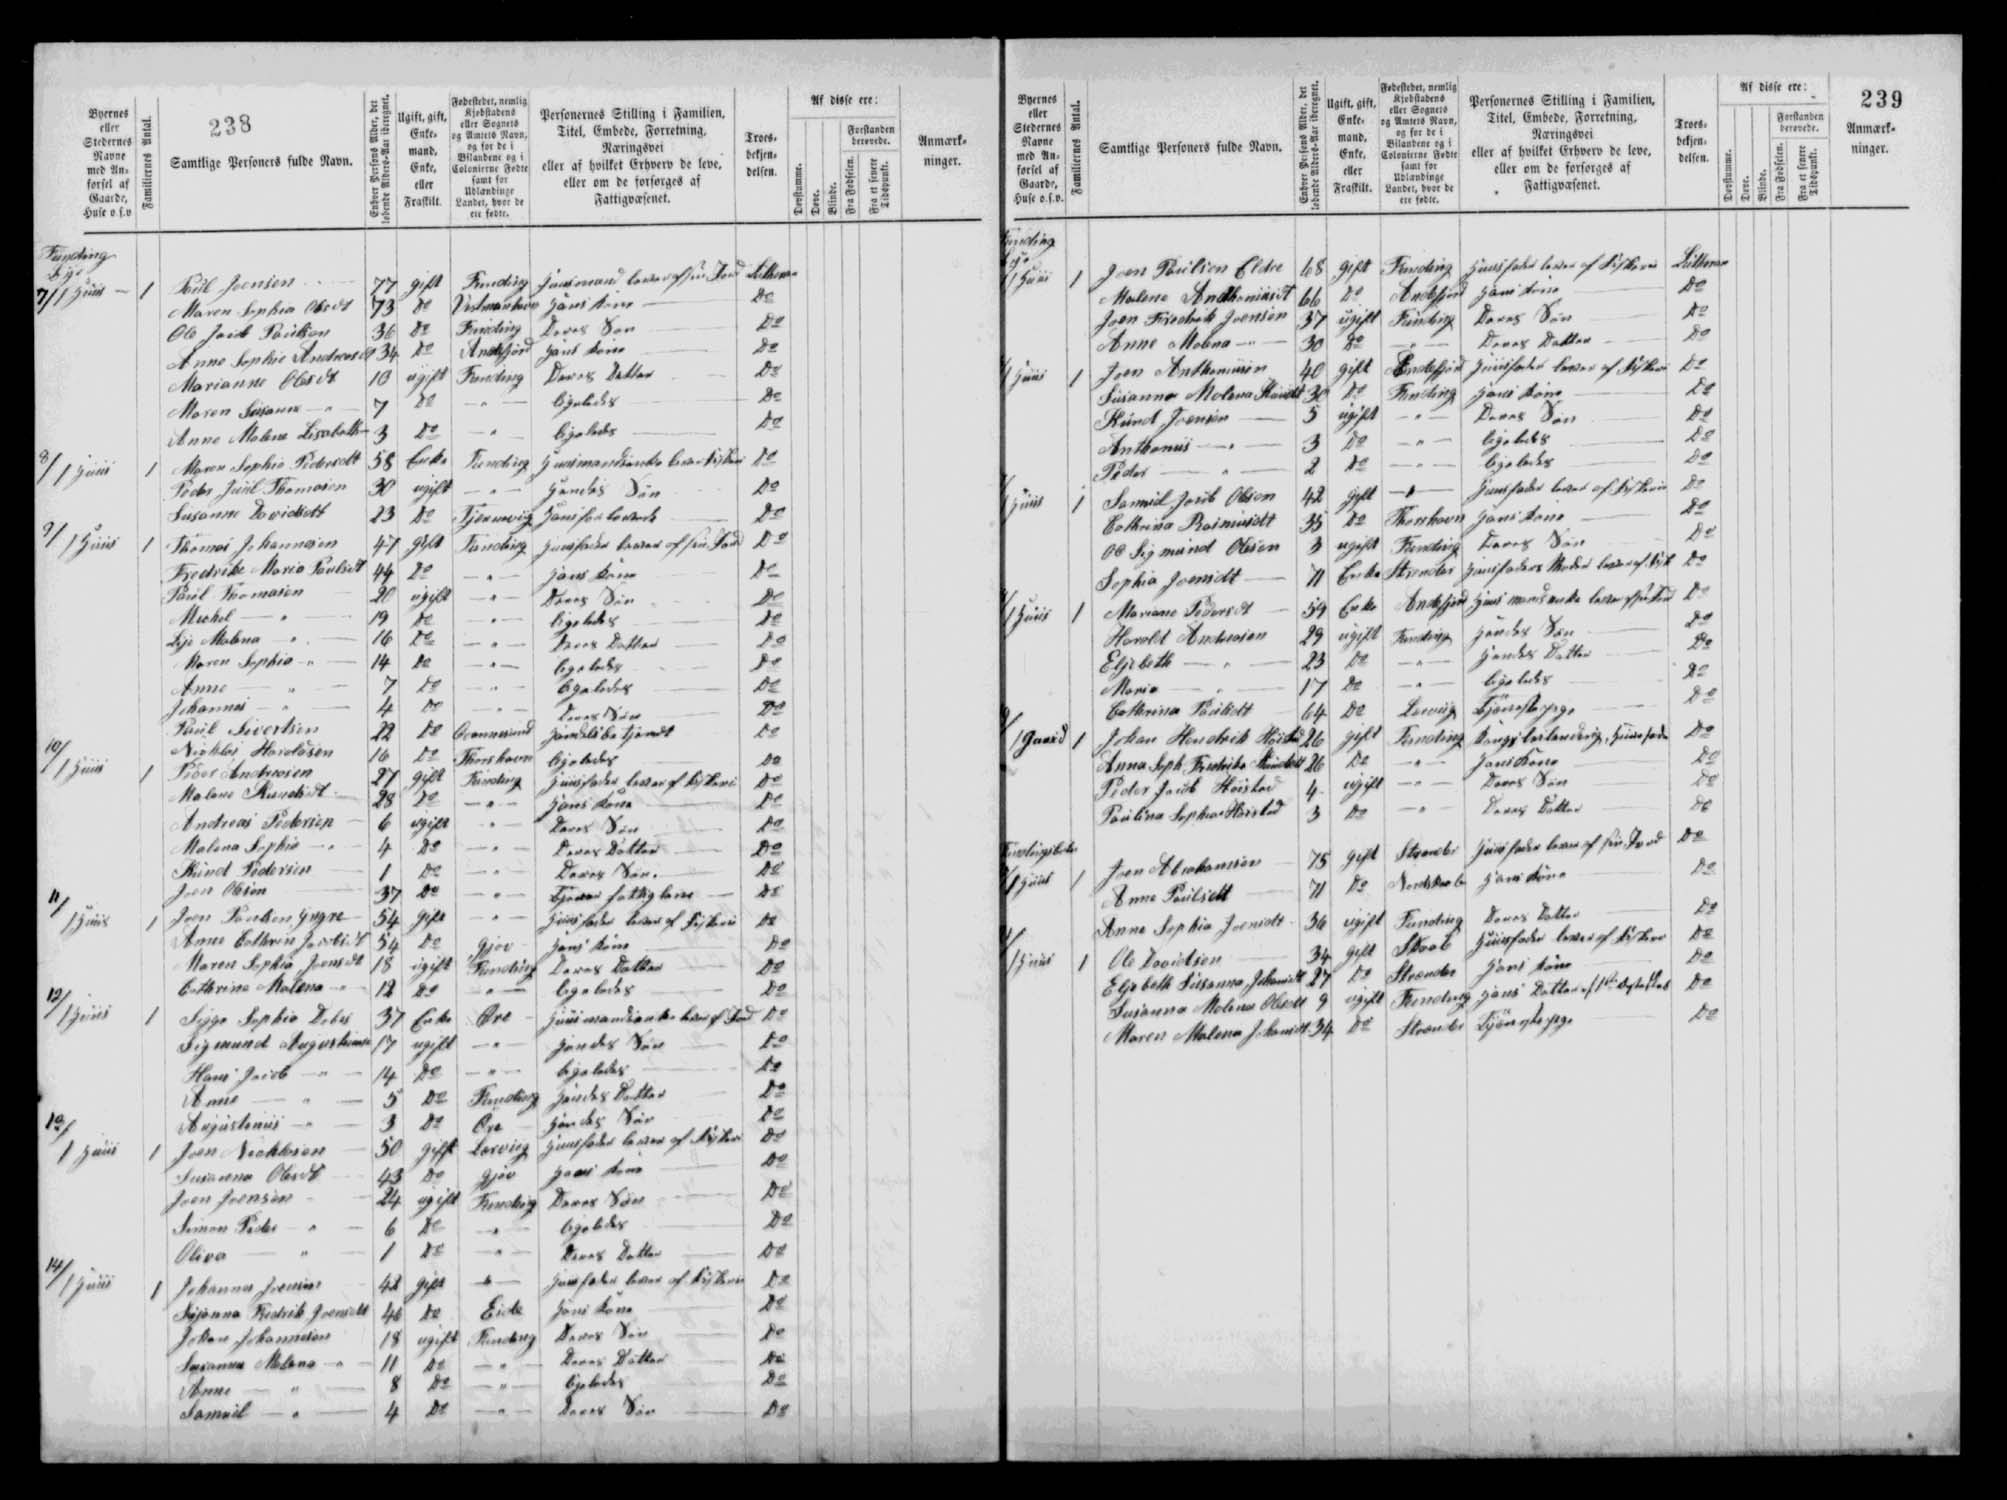 238
Byernes eller Stedernes Navne med Anførsel af Gaarde, Huse o.s.v
Familiernes Antal.
Samtlige Personers fulde Navn.
Enhver Persons Alder, det løbende Alders-Aar iberegnet.
Ugift, gift, Enkemand, Enke, eller Fraskilt.
Fødestedet, nemlig Kjøbstadens eller Sognets og Amtets Navn, og for de i Bilandene og i Colonierne Fødte samt for Udlændinge Landet, hvor de ere fødte.
Personernes Stilling i Familien, Titel, Embede, Forretning, Næringsvei eller af hvilket Erhverv de leve, eller om de forsørges af Fattigvæsenet.
Troesbekjendelsen.
Af disse ere:
Døvstumme.
Døve.
Blinde.
Forstanden berøvede.
Fra Fødselen.
Fra et senere Tidspunkt.
Anmærkninger.
Funding
7/ 1 Huus 1 Poül Joensen 77 gift Funding Huusmand lever af sin Jord Lutheran
Maren Sophia Olesdt 73 Do Hans Kone Do
Ole Jacob Paulsen 36 Do Funding Deres Søn Do
Anne Sophie Andreasdt 34 Do Andefjord Hans Kone Do
Marianne Olesdt 10 ugift Funding Deres Datter Do
Maren Susanne -"- 7 Do -"- ligeledes Do
Anne Malene Lisabeth 3 Do -"- ligeledes Do
8/ 1 Huus 1 Maren Sophie Pedersdt 58 Enke Funding Huusmandsenke lever Fiskeri Do
Peder Juul Thomasen 30 ugift -"- Hendes Søn Do
Susanne Davidsdt 23 Do Do
9/ 1 Huus 1 Thomas Johannesen 47 gift Funding Huusfader lever af sin Jord Do
Fredrike Maria Poulsdt 44 Do -"- Hans Kone Do
Poul Thomasen 20 ugift -"- Deres Søn Do
Michel -"- 19 Do -"- ligeledes Do
Malena -"- 16 Do -"- Deres Datter Do
Maren Sophia -"- 14 Do -"- ligeledes Do
Anne -"- 7 Do -"- ligeledes Do
Johannes -"- 4 Do -"- Deres Søn Do
Poul Sivertsen 22 Do Do
Nicklas Haraldsen 16 Do Thorshavn ligeledes Do
10/ 1 Huus 1 Peder Andreasen 27 gift Funding Huusfader lever af Fiskeri Do
Malene Knudsdt 28 Do -"- Hans Kone Do
Andreas Pedersen 6 ugift -"- Deres Søn Do
Malena Sophia -"- 4 Do -"- Deres Datter Do
Knud Pedersen 1 Do -"- Deres Søn. Do
Joen Olsen 37 Do -"- Do
11/ 1 Huus 1 Joen Poulsen Yngre 54 gift -"- Huusfader lever af Fiskeri Do
Anne Cathrin Jacobsdt 54 Do Gjov Hans Kone Do
Maren Sophia Joensdt 18 ugift Funding Deres Datter Do
Cathrine Malena -"- 12 Do -"- ligeledes Do
12/ 1 Huus 1 Sophia Debes 37 Enke Øre Huusmandsenke lever af Jord Do
Sigmund Augustinus 17 ugift -"- Hendes Søn Do
Hans Jacob -"- 14 Do -"- ligeledes Do
Anne -"- 5 Do Funding Hendes Datter Do
Augustinus -"- 3 Do Øre Hendes Søn Do
13/ 1 Huus 1 Joen Nicklasen 50 gift Lorvig Huusfader lever af Fiskeri Do
Susanna Olesdt 43 Do Gjov Hans Kone Do
Joen Joensen 24 ugift Funding Deres Søn Do
Simon Peder -"- 6 Do -"- ligeledes Do
Oliva -"- 1 Do -"- Deres Datter Do
14/ 1 Huus 1 Johannes Joensen 42 gift -"- Huusfader lever af Fiskeri Do
Susanna Fredrik Joensdt 46 Do Eide Hans Kone Do
Johan Johannesen 18 ugift Funding Deres Søn Do
Susanna Malena -"- 11 Do -"- Deres Datter Do
Anne -"- 8 Do -"- ligeledes Do
Samuel -"- 4 Do -"- Deres Søn Do
239
Byernes eller Stedernes Navne med Anførsel af Gaarde, Huse o.s.v.
Familiernes Antal.
Samtlige Personers fulde Navn.
Enhver Persons Alder, det løbende Alders-Aar iberegnet.
Ugift, gift, Enkemand, Enke, eller Fraskilt.
Fødestedet, nemlig Kjøbstadens eller Sognets og Amtets Navn, og for de i Bilandene og i Colonierne Fødte samt for Udlændinge Landet, hvor de ere fødte.
Personernes Stilling i Familien, Titel, Embede, Forretning, Næringsvei eller af hvilket Erhverv de leve, eller om de forsørges af Fattigvæsenet.
Troesbekjendelsen.
Af disse ere:
Døvstumme.
Døve.
Blinde.
Forstanden berøvede.
Fra Fødselen.
Fra et senere Tidspunkt.
Anmærkninger.
Funding
1 Huus 1 Joen Poulsen Eldre 68 gift Funding Huusfader lever af Fiskeri Lutheran
Malene Anthoniusdt 66 Do Andefjord Hans Kone Do
Joen Fredrik Joensen 37 ugift Funding Deres Søn Do
Anne Malena -"- 30 Do -"- Deres Datter Do
1 Huus 1 Joen Anthoniusen 40 gift Andefjord Huusfader lever af Fiskeri Do
Susanna Malena Knudsdt 30 Do Funding Hans Kone Do
Knud Joensen 5 ugift -"- Deres Søn Do
Anthonius -"- 3 Do -"- ligeledes Do
Peder -"- 2 Do -"- ligeledes Do
1 Huus 1 Samuel Jacob Olesen 42 gift -"- Huusfader lever af Fiskeri Do
Cathrina Rasmusdt 35 Do Thorshavn Hans Kone Do
Ole Sigmund Olesen 3 ugift Funding Deres Søn Do
Sophia Joensdt 71 Enke Strender Huusfaders Moder lever af Do
1 Huus 1 Mariane Pedersdt 59 Enke Andefjord Huusmandsenke lever af sin Jord Do
Harald Andreasen 29 ugift Funding Hendes Søn Do
Elsebeth -"- 23 Do -"- Hendes Datter Do
Maria -"- 17 Do -"- ligeledes Do
Cathrina Poulsdt 64 Do Lorvig Tjenestepige Do
1 Gaard 1 Johan Hendrik Høisted 26 gift Funding Huusfader Do
Anna Soph. Fredrika Knudsdt 26 Do -"- Hans Kone Do
Peder Jacob Høisted 4 ugift -"- Deres Søn Do
Paulina Sophia Høisted 3 Do -"- Deres Datter Do
Fundingsbotn
1 Huus 1 Joen Abrahamsen 75 gift Strender Huusfader lever af sin Jord Do
Anne Poulsdt 71 Do Hans Kone Do
Anne Sophia Joensdt 36 ugift Funding Deres Datter Do
1 Huus 1 Ole Davidsen 34 gift Skaale Huusfader lever af Fiskeri Do
Elsebeth Susanna Johansdt 27 Do Strender Hans Kone Do
Susanna Malena Olesdt 9 ugift Funding Hans Datter af 1ste Ægteskab Do
Maren Malena Johansdt 34 Do Strender Tjenestepige Do